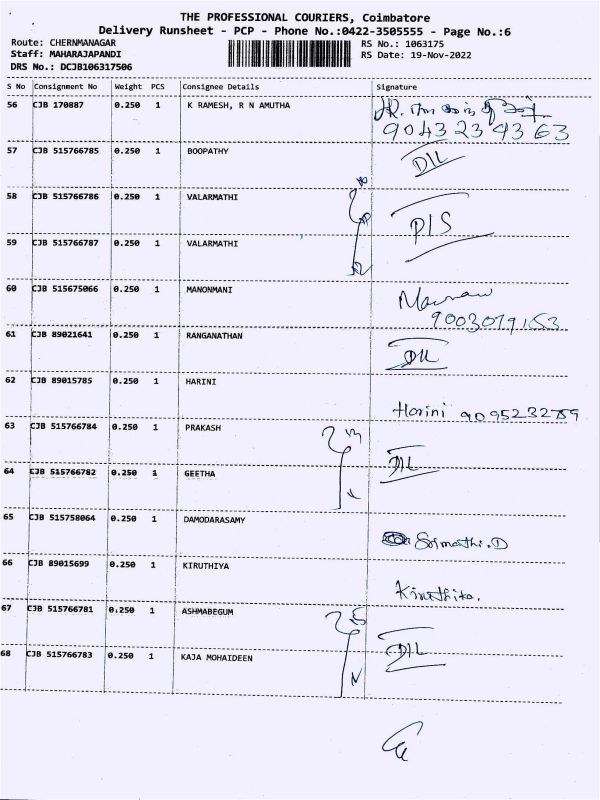 THE PROFESSIONAL COURIERS, Coimbatore
Delivery Runsheet - PCP - Phone No.:0422-3505555 - Page No.:6
Route: CHERNMANAGAR RS No.: 1063175
Staff: MAHARAJAPANDI RS Date: 19-Nov-2022
DRS No.: DCJB106317506
S No Consignment No Weight PCS Consignee Details Signature
56 CJB 170887 0.250 1 K RAMESH, R N AMUTHA
9043234363
57 CJB 515766785 0.250 1 BOOPATHY DIL
58 CJB 515766786 0.250 1 VALARMATHI
DIS
59 CJB 515766787 0.250 1 VALARMATHI
60 CJB 515675066 0.250 1 MANONMANI
9003079153
61 CJB 89021641 0.250 1 RANGANATHAN
DIL
62 CJB 89015785 0.250 1 HARINI
Harini 9095232759
63 CJB 515766784 0.250 1 PRAKASH
DIL
64 CJB 515766782 0.250 1 GEETHA
65 CJB 515758064 0.250 1 DAMODARASAMY
Srimathi.D
66 CJB 89015699 0.250 1 KIRUTHIYA
Kiruthika.
67 CJB 515766781 0.250 1 ASHMABEGUM
DIL
68 CJB 515766783 0.250 1 KAJA MOHAIDEEN